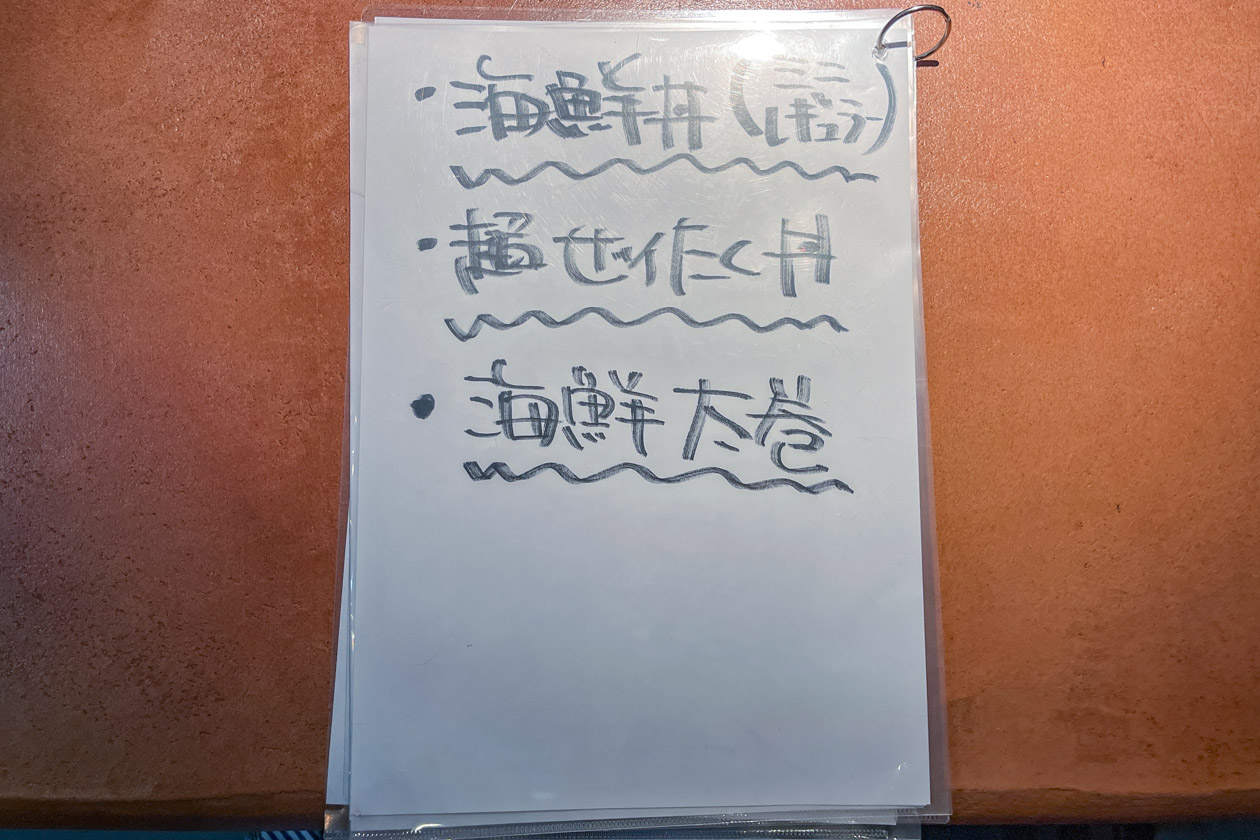 ・海鮮丼(ミニ レギュラー)
・超ぜいたく丼
・海鮮太巻